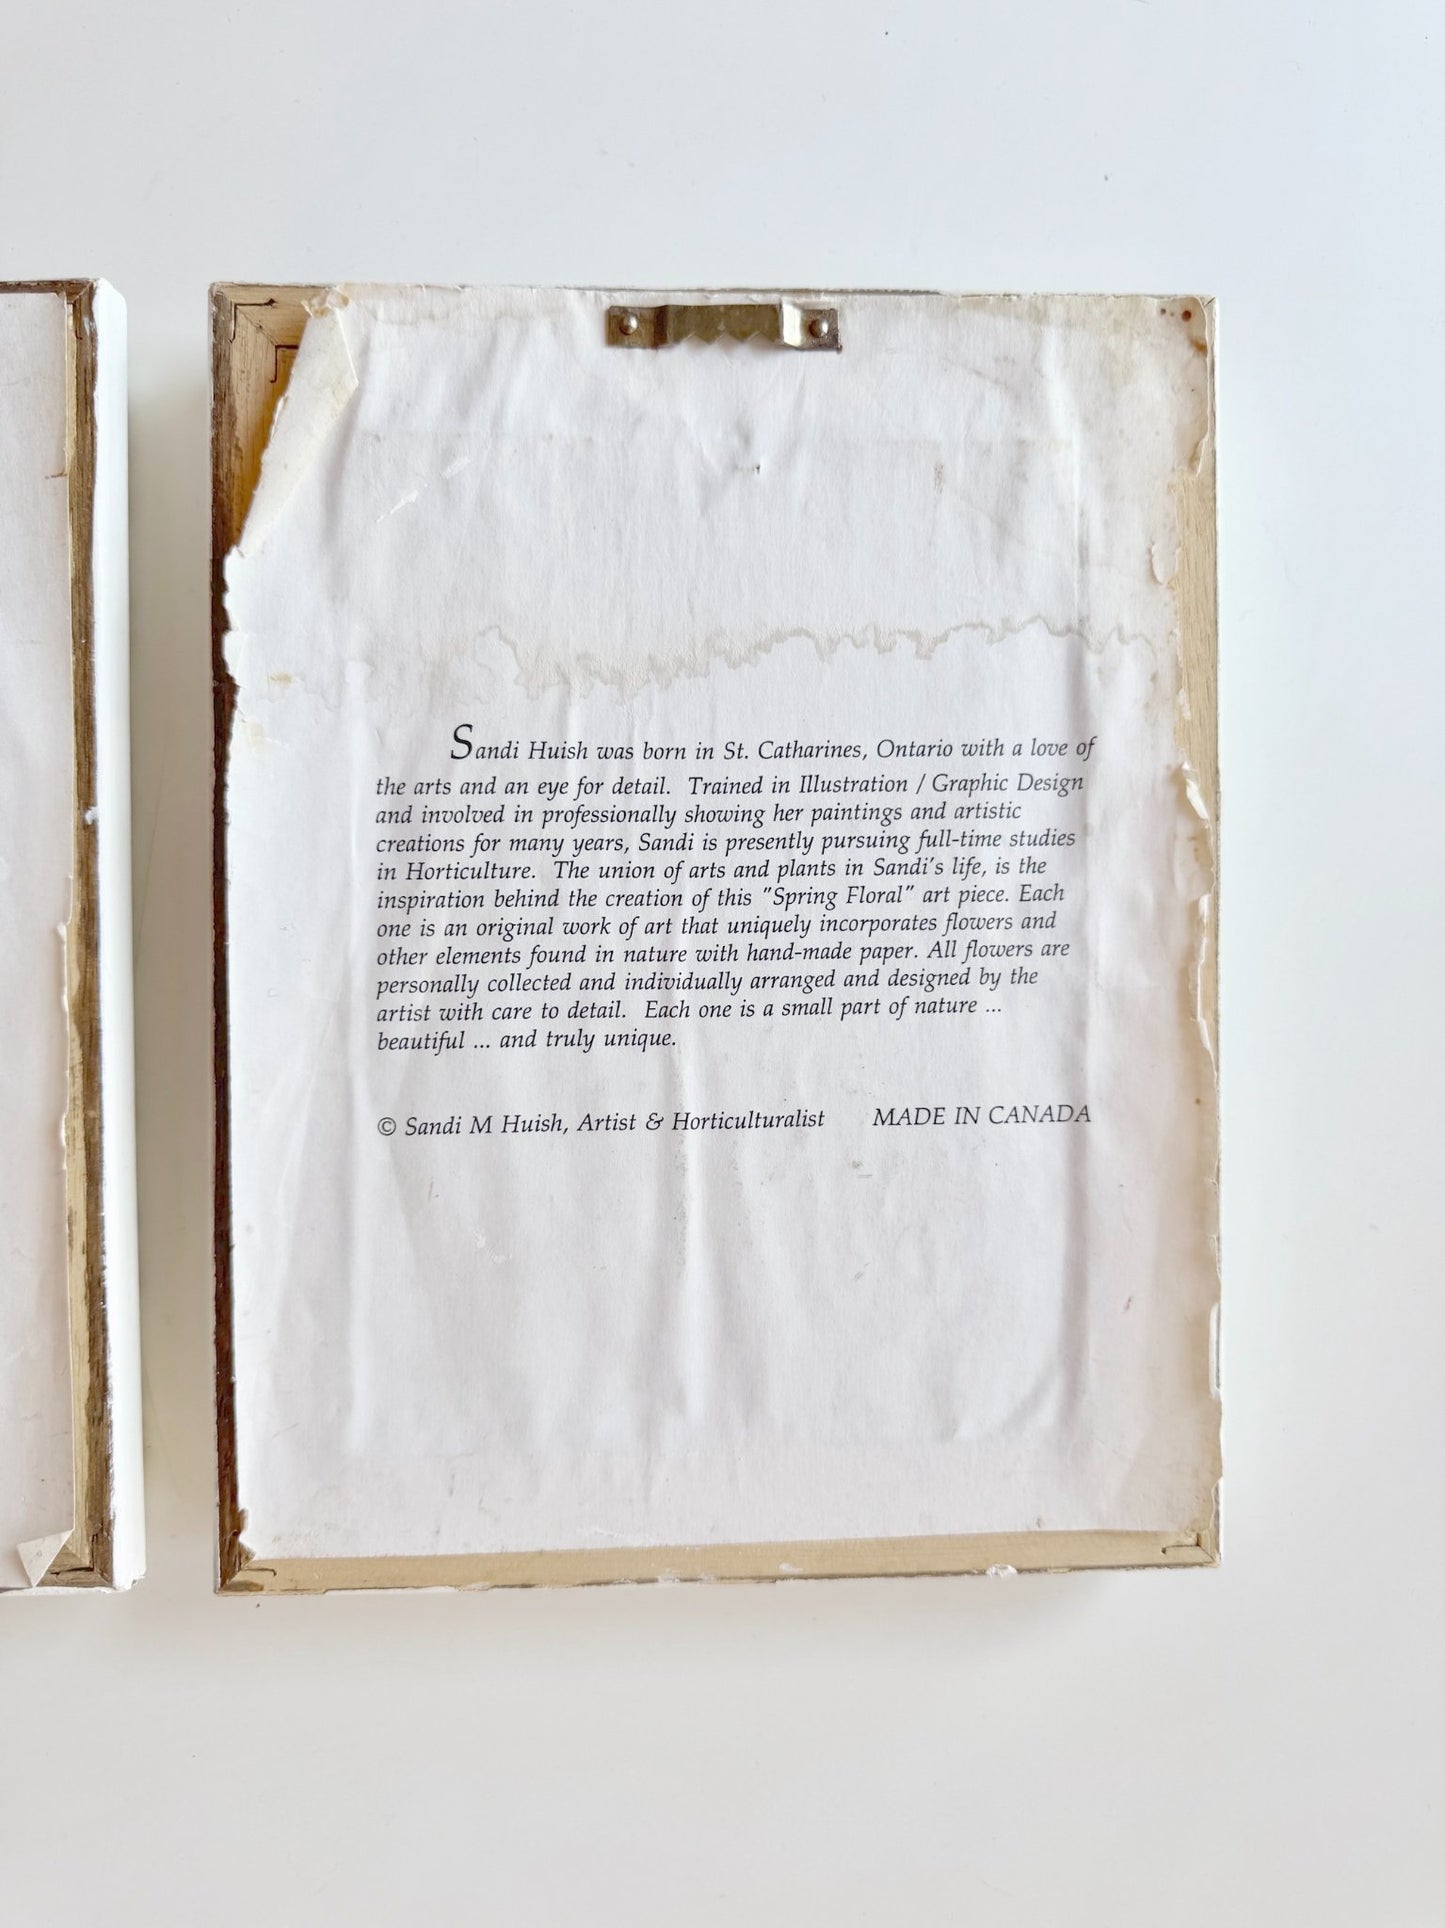 Sandi Huish was born in St. Catharines, Ontario with a love of
the arts and an eye for detail.  Trained in Illustration / Graphic Design
and involved in professionally showing her paintings and artistic
creations for many years, Sandi is presently pursuing full-time studies
in Horticulture.  The union of arts and plants in Sandi's life, is the
inspiration behind the creation of this "Spring Floral" art piece. Each
one is an original work of art that uniquely incorporates flowers and
other elements found in nature with hand-made paper. All flowers are
personally collected and individually arranged and designed by the
artist with care to detail.  Each one is a small part of nature ...
beautiful ... and truly unique.
© Sandi M Huish, Artist & Horticulturalist MADE IN CANADA